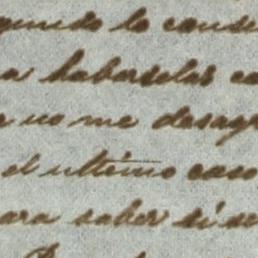 quido lo conse
a haberselas co
e no me desag
el ultimo caso
para saber si se